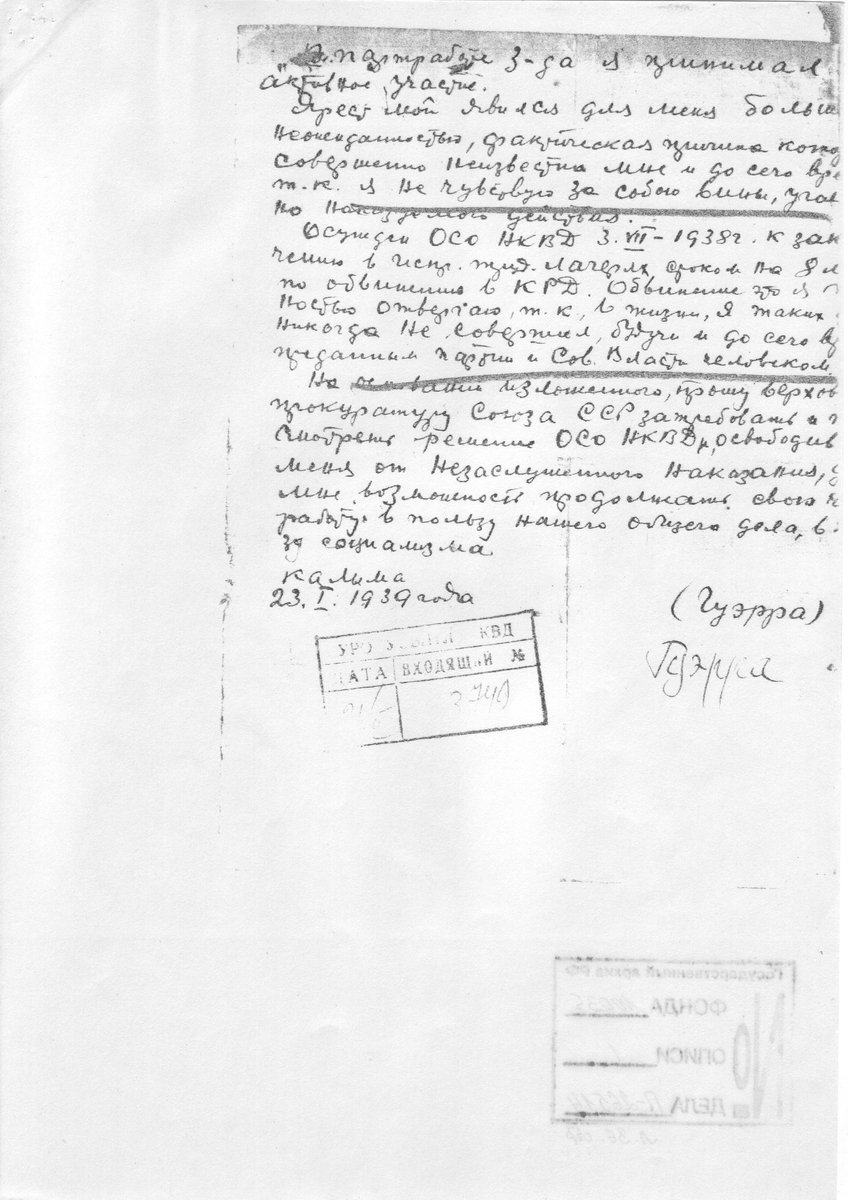 В партработе з-да я принимал
активное участие.
Арест мой явился для меня больш
неожиданностью, фактическая причина кото
совершенно неизвестна мне и до сего вре
т.к. я не чувствую за собою вины, уга
но наказуемого действия.
Осужден ОСО НКВД 3.VII-1938г. к зак
чению в испр. труд. лагерях сроком на 8 л
по обвинению в КРД. Обвинение это я
ностью отвергаю, т.к., в жизни, я таких
никогда не совершил, будучи и до сего в
преданным партии и Сов. Власти человеком.
На основании изложенного, прошу верхов
прокуратуру Союза ССР затребовать и п
смотреть решение ОСО НКВД и, освободив
меня от незаслуженного наказания,
мне возможность продолжать свою
работу в пользу нашего общего дела, в
за социализма
Калыма
23.I.1939 года
(Гуэрра)
Гуэрра
УРО КВД
ДАТА ВХОДЯЩИЙ №
3740
Государственный архив РФ
№
ФОНДА
ОПИСИ
ДЕЛА